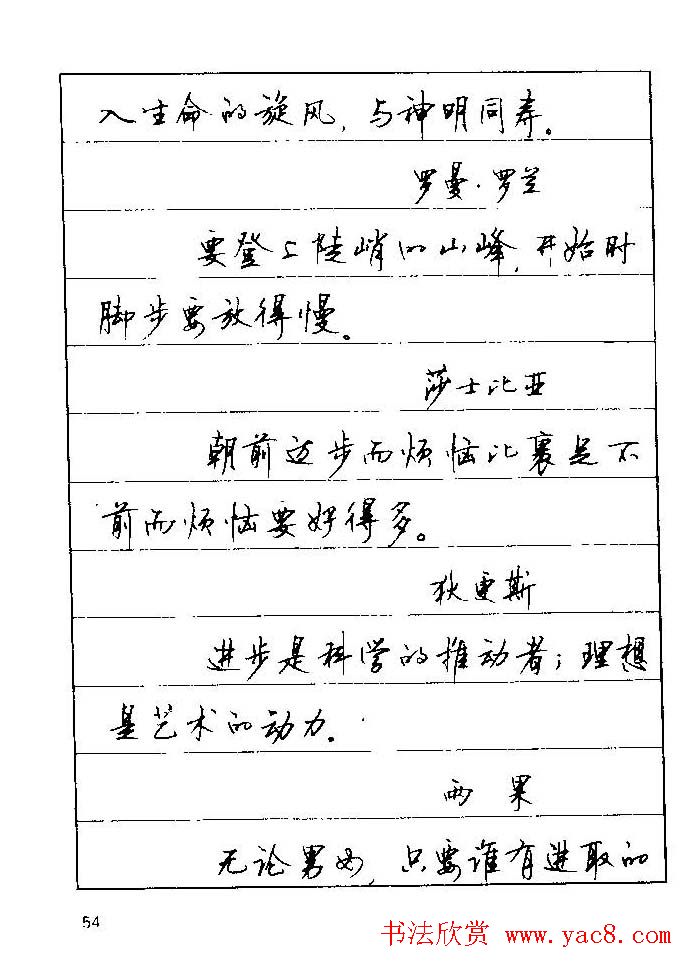 入生命的旋风，与神明同寿。
罗曼·罗兰
要登上陡峭的山峰，开始时
脚步要放得慢。
莎士比亚
朝前迈步而烦恼比裹足不
前而烦恼要好得多。
狄更斯
进步是科学的推动者；理想
是艺术的动力。
雨果
无论男女，只要谁有进取的
54
书法欣赏 www.yac8.com